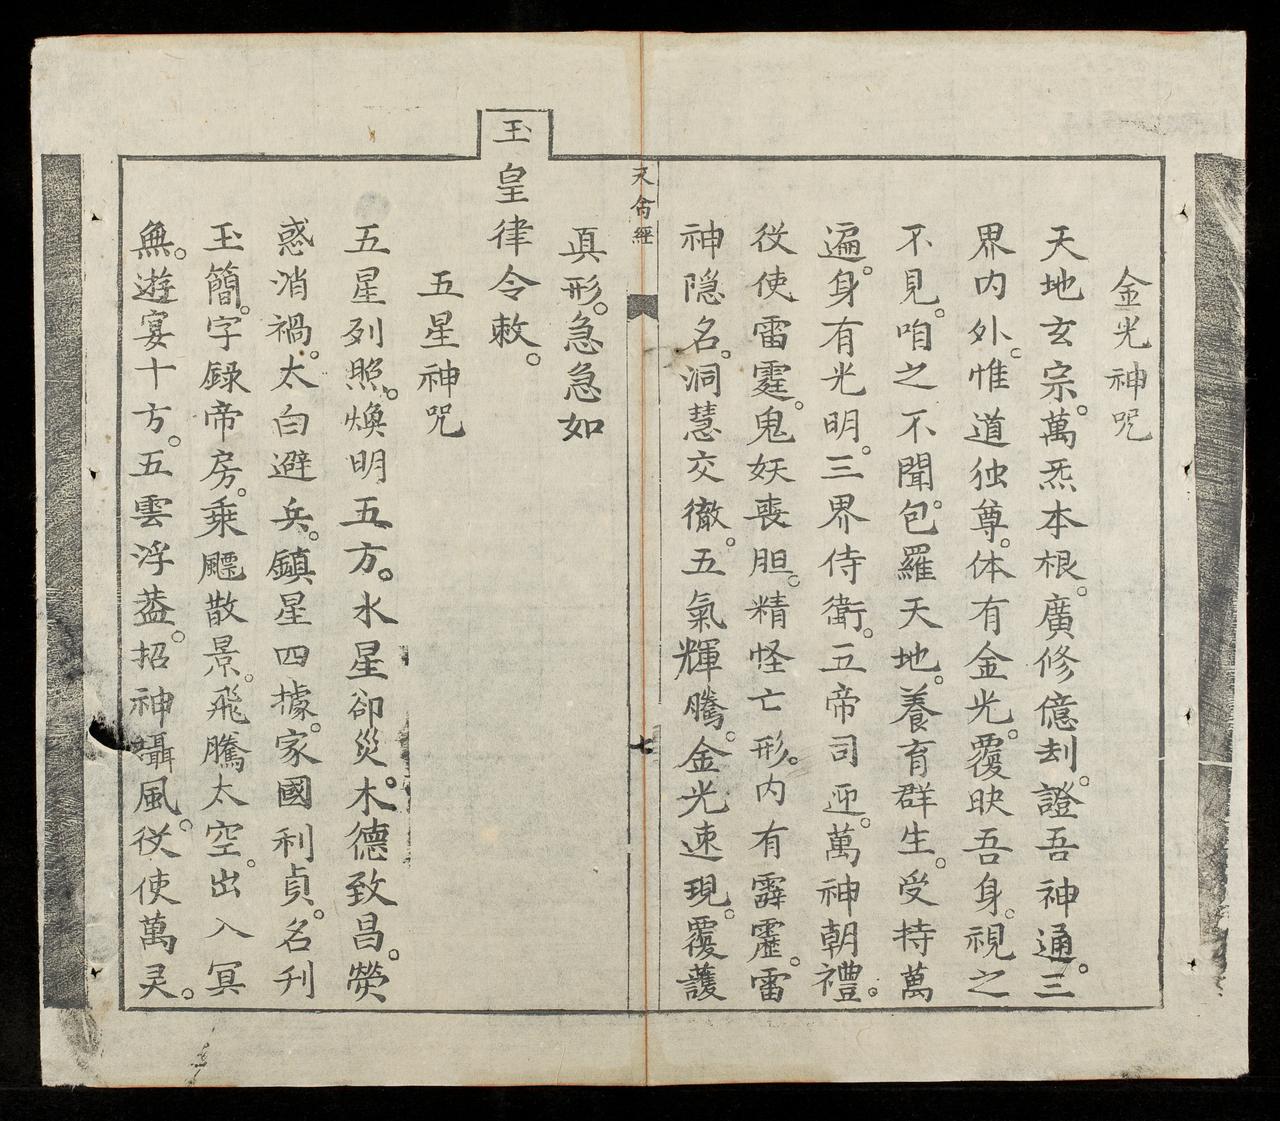 金光神咒
天地玄宗。萬炁本根。廣修億刦。證吾神通。三
界内外。惟道独尊。体有金光。覆映吾身。視之
不見。咱之不聞。包羅天地。養育群生。受持萬
遍。身有光明。三界侍衛。五帝司迎。萬神朝禮。
役使雷霆。鬼妖丧胆。精怪亡形。内有霹靂。雷
神隐名。洞慧交徹。五氣輝騰。金光速現。覆護
天舍經
七
真形。急急如
玉皇律令敕。
五星神咒
五星列照。煥明五方。水星卻災。木德致昌。熒
惑消禍。太白避兵。鎮星四據。家國利貞。名刋
玉簡。字録帝房。乘飚散景。飛騰太空。出入冥
無。遊宴十方。五雲浮蓋。招神攝風。役使萬灵。